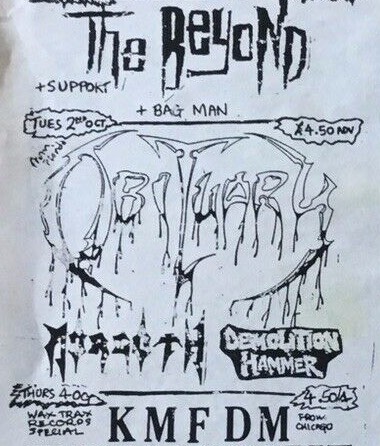 The BeyonD
+ SUPPORT
+ BAG MAN
TUES 2ND OCT
£4.50 ADV
from Florida
OBITUARY
MORGOTH
DEMOLITION
HAMMER
THURS 4 OC
4.50A
WAX TRAX
RECORDS
SPECIAL
KMFDM
FROM
CHICAGO